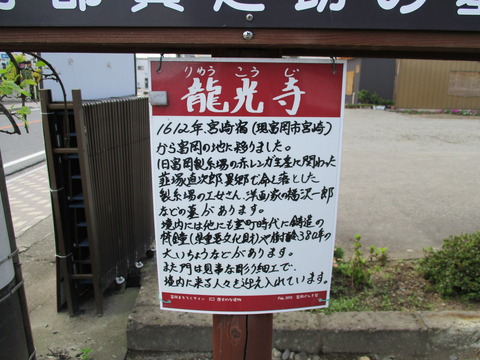 部貞之助の墓
りゅう こう じ
龍光寺
1612年、宮崎宿(現富岡市宮崎)
から富岡の地に移りました。
旧富岡製糸場の赤レンガ生産に関わった
韮塚直次郎、異郷で命を落とした
製糸場の工女さん、洋画家の福沢一郎
などの墓があります。
境内には他にも室町時代に鋳造の
梵鐘(県重要文化財)や樹齢380年の
大いちょうなどがあります。
また門は見事な彫り細工で、
境内に来る人を迎え入れています。
富岡まちづくサイン
歴史的な建物